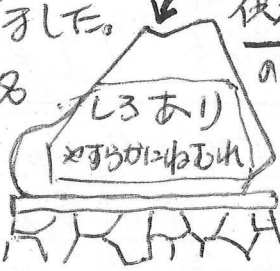 ました。
しろあり
やすらかにねむれ
の